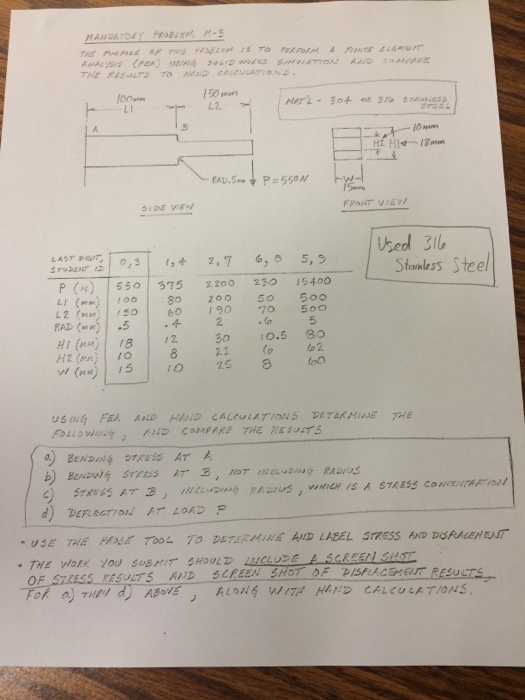 MANDATORY PROBLEM M-3
THE PURPOSE OF THIS PROBLEM IS TO PERFORM A FINITE ELEMENT
ANALYSIS (FEA) USING SOLID WORKS SIMULATION AND COMPARE
THE RESULTS TO HAND CALCULATIONS.
100mm
L1
150mm
L2
MAT'L - 304 OR 316 STAINLESS
STEEL
A
B
10mm
H2 H1 18mm
RAD .5mm P=550N
W
15mm
SIDE VIEW
FRONT VIEW
Used 316
Stainless Steel
LAST DIGIT, STUDENT ID 0,3 1,4 2,7 6,8 5,9
P (N) 550 375 2200 230 15400
L1 (MM) 100 80 200 50 500
L2 (MM) 150 60 190 70 500
RAD (MM) .5 .4 2 .6 5
H1 (MM) 18 12 30 10.5 80
H2 (MM) 10 8 22 6 62
W (MM) 15 10 25 8 60
USING FEA AND HAND CALCULATIONS DETERMINE THE
FOLLOWING, AND COMPARE THE RESULTS
a.) BENDING STRESS AT A
b) BENDING STRESS AT B, NOT INCLUDING RADIUS
c) STRESS AT B, INCLUDING RADIUS, WHICH IS A STRESS CONCENTRATION
d) DEFLECTION AT LOAD P
• USE THE PROBE TOOL TO DETERMINE AND LABEL STRESS AND DISPLACEMENT
• THE WORK YOU SUBMIT SHOULD INCLUDE A SCREEN SHOT
OF STRESS RESULTS AND SCREEN SHOT OF DISPLACEMENT RESULTS
FOR a) THRU d) ABOVE, ALONG WITH HAND CALCULATIONS.